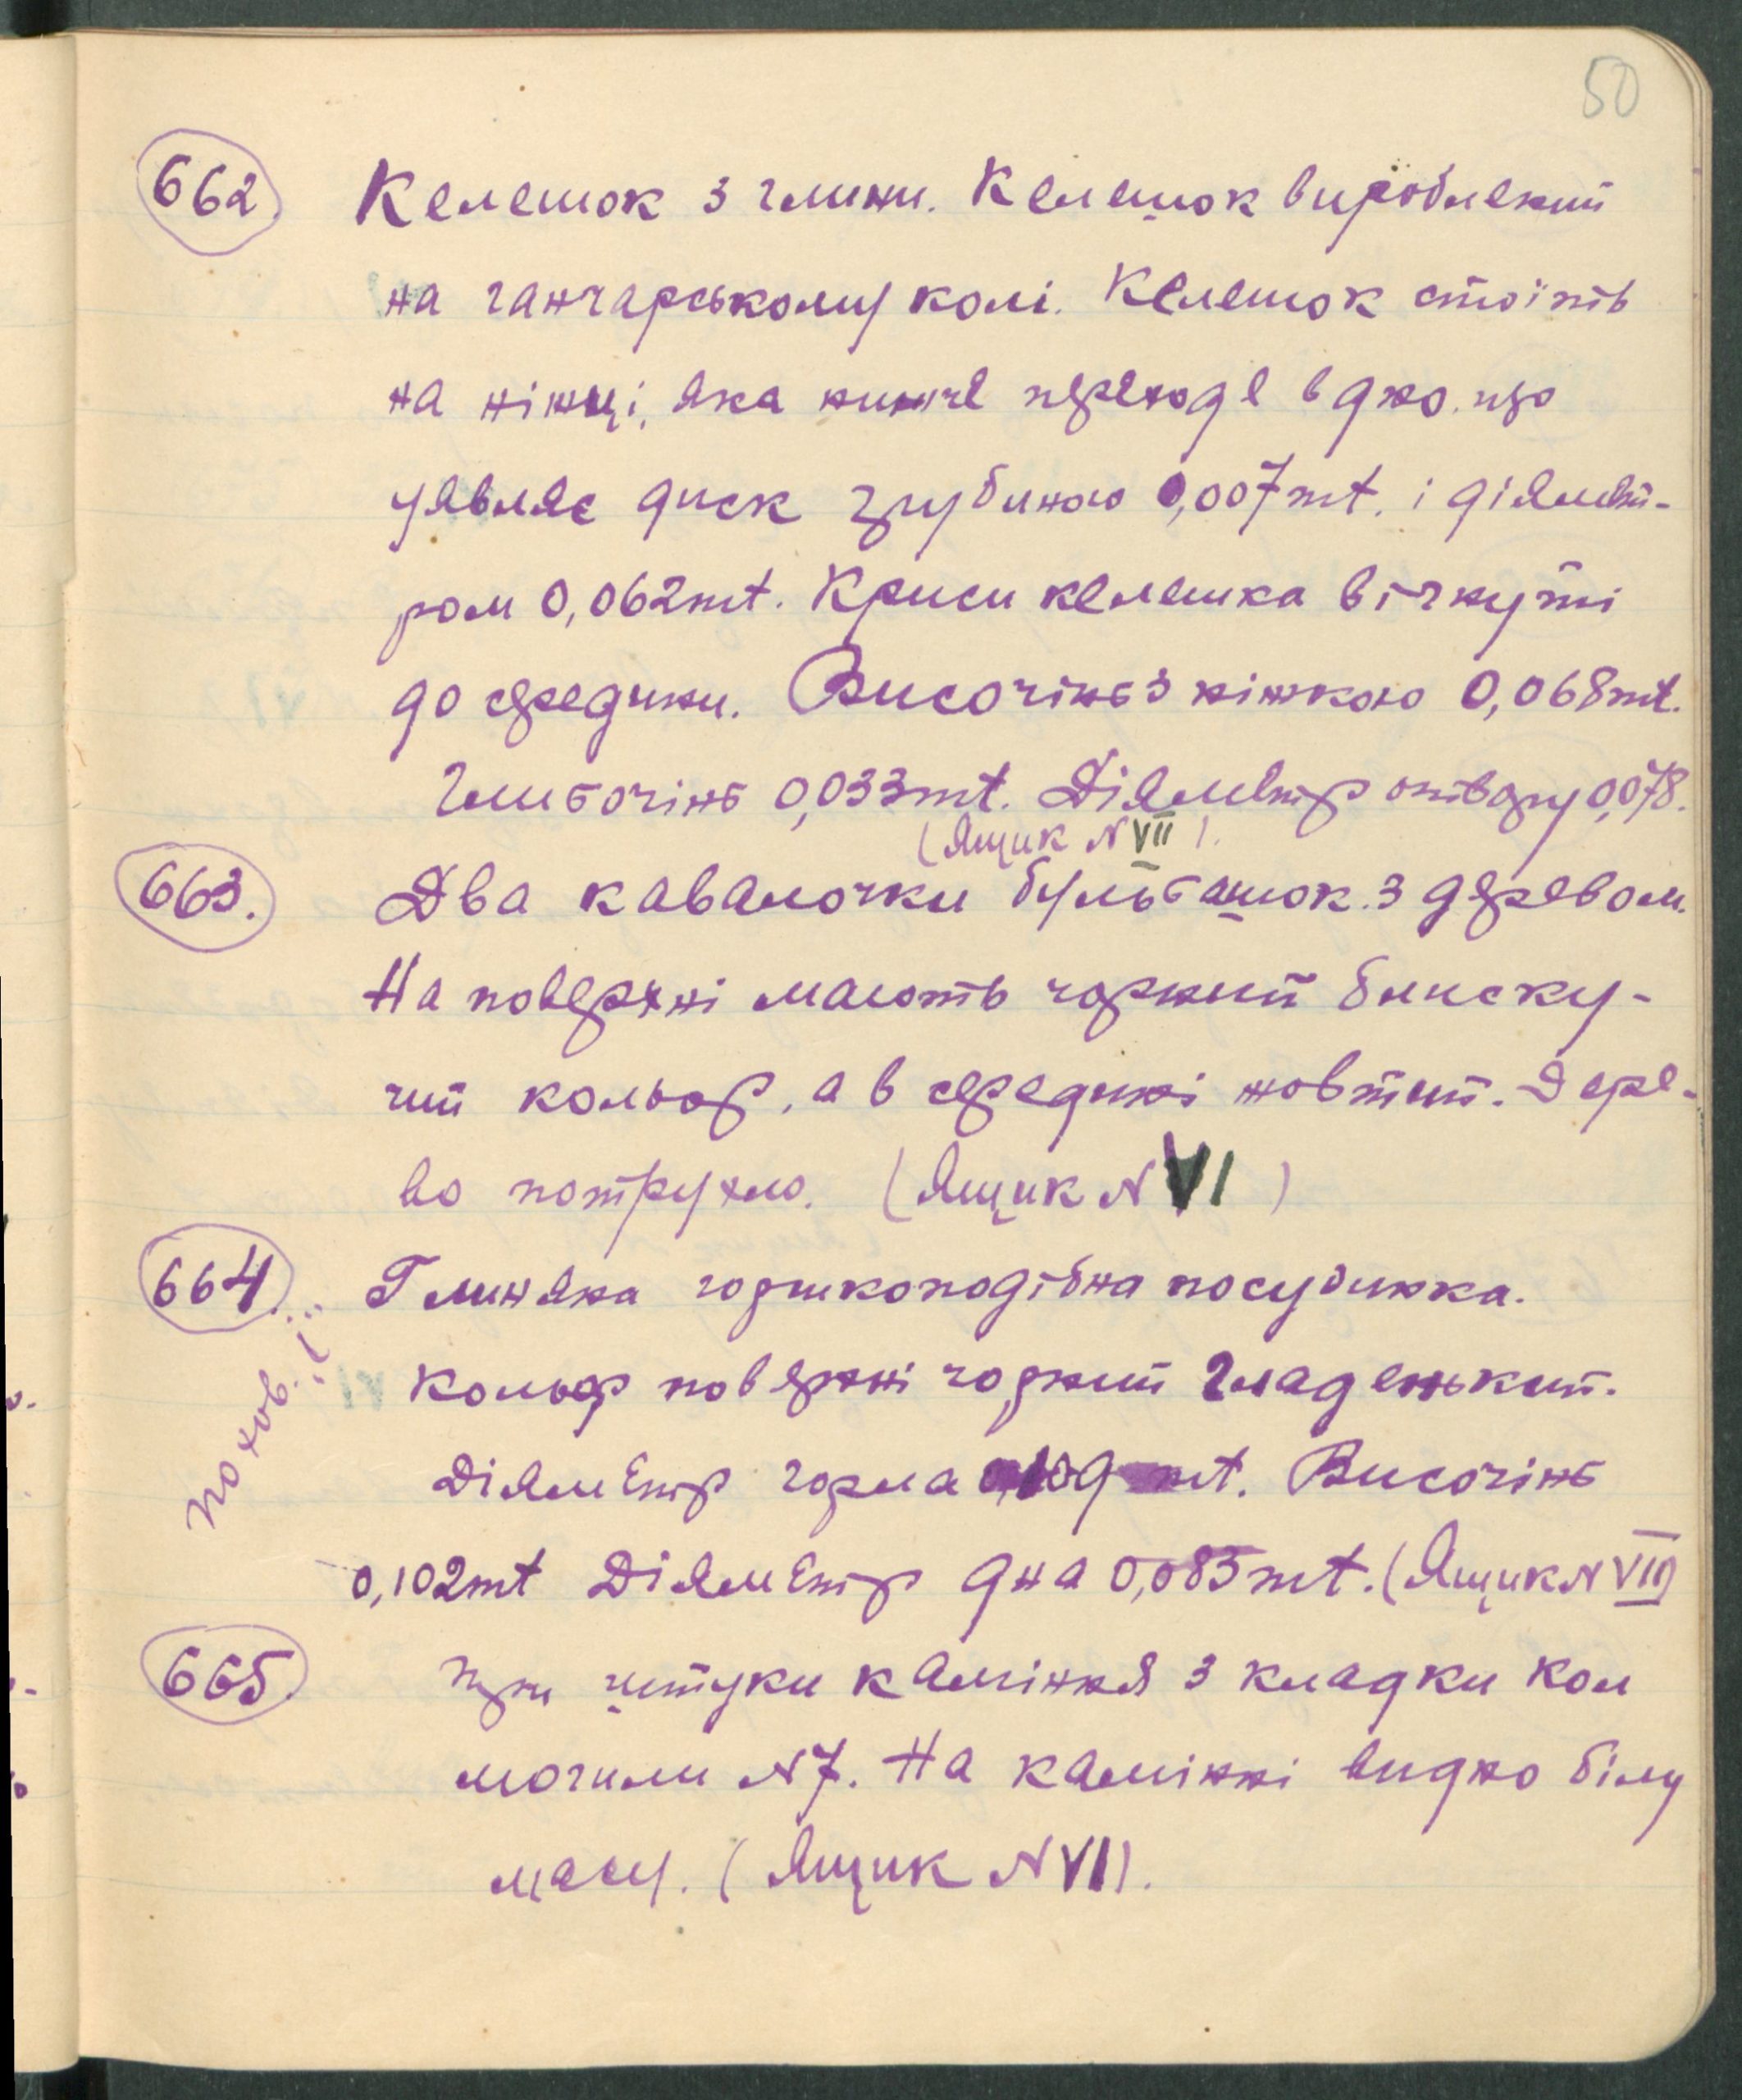 50
662. Келешок з глини. Келешок вироблений
на ганчарському колі. Келешок стоїть
на ніжці, яка нижче переходе в дно, що
уявляє диск грубиною 0,007 mt. і діямет-
ром 0,062 mt. Криси келешка вігнуті
до середини. Височінь з ніжкою 0,068 mt.
Глибочінь 0,033 mt. Діяметр отвору 0,078.
(Ящик N VII).
663. Два кавалочки бульбашок з деревом.
На поверхні мають чорний блиску-
чий кольор, а в середині жовтий. Дере-
во потрухло. (Ящик N VI)
664. Глиняна горшкоподібна посудинка.
похов.
Кольор поверхні чорний гладенький.
Діяметр горла 0,109 mt. Височінь
0,102 mt Діяметр дна 0,085 mt. (Ящик N VII)
665. Три штуки каміння з кладки кол
могили N 7. На камінні видно білу
масу. (Ящик N VI).